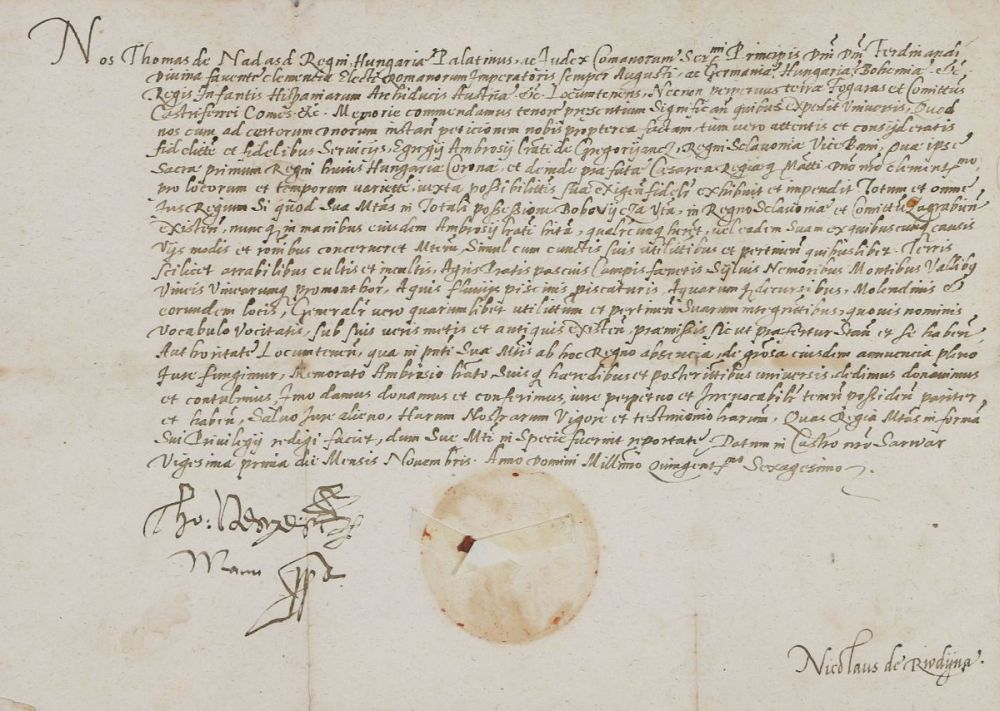 Nos Thomas de Nadasd Regni Hungariæ Palatinus, ac Iudex Comanorum Ser^mi Principis Dni Dni Ferdinandi
Divina favente clementia Electi Romanorum Imperatoris semper Augusti, ac Germaniæ Hungariæ Bohemiæ &c
Regis Infantis Hispaniarum Archiducis Austriæ &c. Locumtenens, Necnon perpetuus terræ Fogaras et Comittus
Castriferrei Comes &c. Memorie commendamus tenore presentium Significan quibus expedit Universis, Quod
nos cum ad certorum nonorum instan peticionem nobis propterea factam tum vero attentis et consyderatis
fidelitte et fidelibus Servicijs, Egregij Ambrosij lrati de Gregoryancz, Regni Sclavoniæ Vice Bani, Quæ ipse
Sacræ primum Regni huius Hungariæ Coronæ, et deinde præfatæ Cæsareæ Regiæq Mátti Dno nro clement^mo
pro locorum et temporum variette, iuxta possibilittis suæ exigen fideli exhibuit et impendit Totum et omne
Ius Regium Si quod Sua Mtas in Totali possessione Bobovijcza Vtá, in Regno Sclavoniæ et Comittu Zagrabien
existen, nuncq in manibus eiusdem Ambrosij lrati hitá, qualitercunq heret, vel eadem Suam ex quibuscunq causis
Vijs modis et ronibus concerneret Mttem, Simul cum cunctis suis utilittibus et pertinen quibuslibet. Terris
scilicet arrabilibus cultis et incultis, Agris Pratis pascuis Campis fœnetis Syluis Nemoribus Montibus Vallibq
Vineis Vinearumq promonthor, Aquis fluvijs piscinis piscaturis Aquarum decursibus, Molendinis &
eorundem locis, Generalr vero quarumlibet utilittum et pertinen Suarum integrittibus, quovis nominis
vocabulo Vocitatis, sub suis veris metis et antiquis existen, præmissis sic ut præfertur Stan et se haben
Authoritate Locumtenen, qua in pnti Suæ Mttis ab hoc Regno absencia, de grosa eiusdem annuencia pleno
Iure fungimur, Memorato Ambrosio lrato, Suisq hæredibus et posterittibus universis, dedimus donavimus
et contulimus, Imo damus donamus et conferimus, iure perpetuo et Irrevocabilr tenen possiden pariter
et haben, Salvo Iure alieno, Harum Nostrarum Vigore et testimonio harum, Quas Regia Mtas in formá
Sui Privilegij redigi faciet, dum Suæ Mti in Specie fuerint reportatæ Datum in Castro nro Sarwar
Vigesima prima die Mensis Novembris. Anno Domini Millmo Quingent^mo Sexagesimo.
Tho:
Manu
Nicolaus de